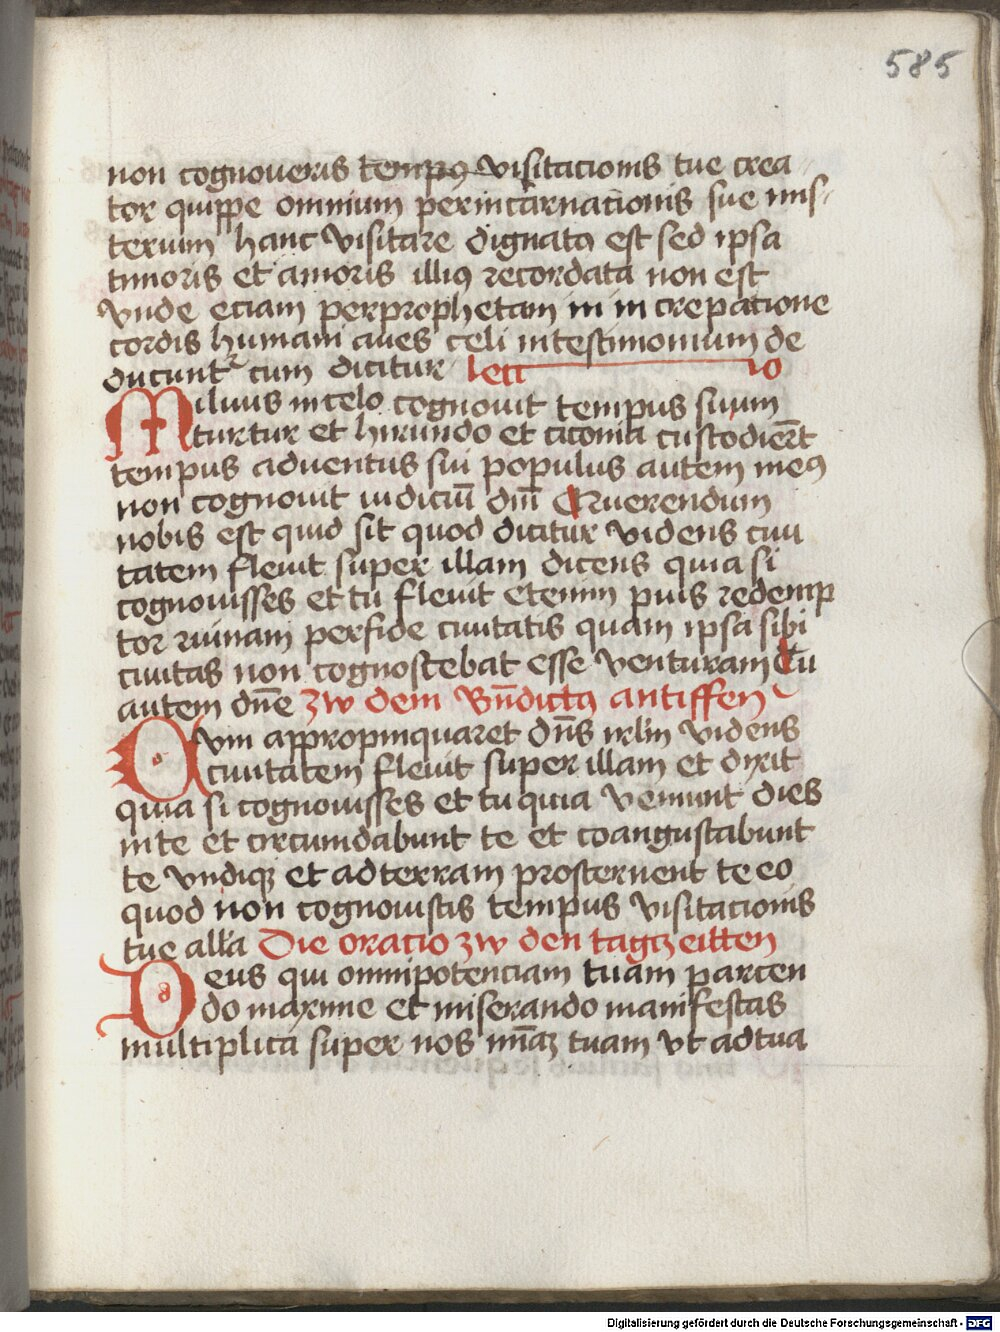 585
non cognoueris tempus visitacionis tue crea
tor quippe omnium perincarnacionis sue mis
terium hanc visitare dignatus est sed ipsa
timoris et amoris illius recordata non est
vnde eciam perprophetam in in crepatione
cordis humani aues celi intestimonium de
ducuntur cum dicitur lectio
Miluus incelo cognouit tempus suum
turtur et hirundo et ciconia custodierunt
tempus aduentus sui populus autem meus
non cognouit iudiciū dm̄ Querendum
nobis est quid sit quod dicitur videns ciui
tatem fleuit super illam dicens quia si
cognouisses et tu fleuit etenim pius redemp
tor ruinam perfide ciuitatis quam ipsa sibi
ciuitas non cognoscebat esse venturam Tu
autem dn̄e zw dem Bn̄dictus antiffen
Cum appropinquaret dn̄s irlm videns
ciuitatem fleuit super illam et dixit
quia si cognouisses et tu quia venient dies
inte et circumdabunt te et coangustabunt
te vndiqȝ et adterram prosternent te eo
quod non cognouistis tempus visitacionis
tue alla Die oracio zw den tagczeitten
Deus qui omnipotenciam tuam parcen
do maxime et miserando manifestas
multiplica super nos mīaȝ tuam vt adtua
Digitalisierung gefördert durch die Deutsche Forschungsgemeinschaft - DFG